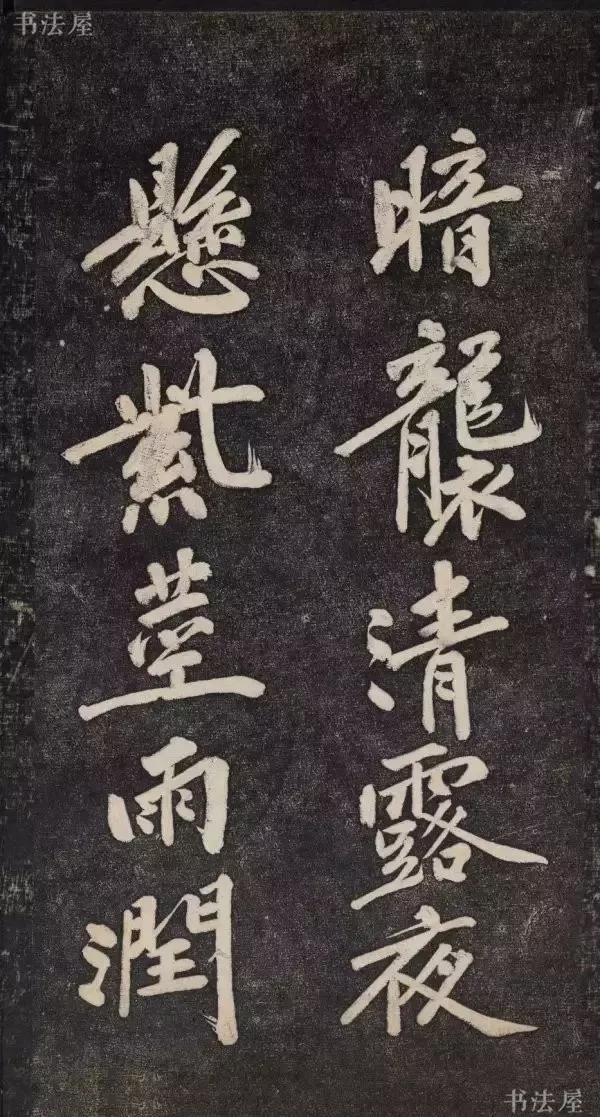 书法屋
暗襲清露夜
懸紫莖雨潤
书法屋